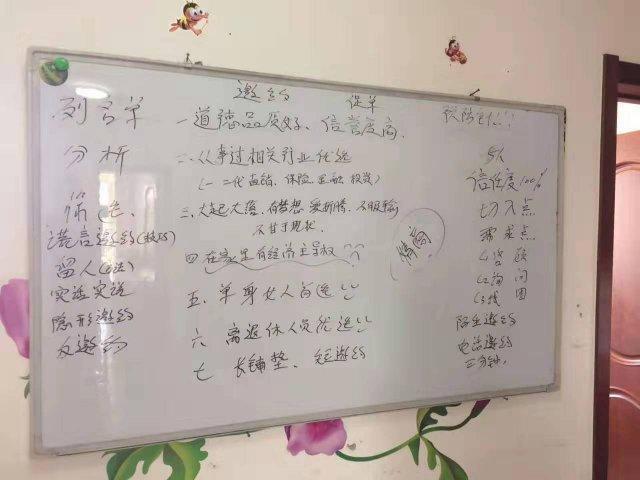 列名单
分析
筛选
谎言邀约(技巧)
留人(方法)
实话实说
隐形邀约
反邀约
邀约 促单
一道德品质好、信誉度高.
二、从事过相关行业优选
(一二代直销、保险 金融 投资)
三、大起大落、有梦想 爱折腾、不服输
不甘于现状
四 在家里有经济主导权
五、单身女人首选!!
六 离退休人员优选!!
七 长铺垫、短邀约
情商
信任度100%
切入点
需求点
陌生邀约
电话邀约
三分钟.